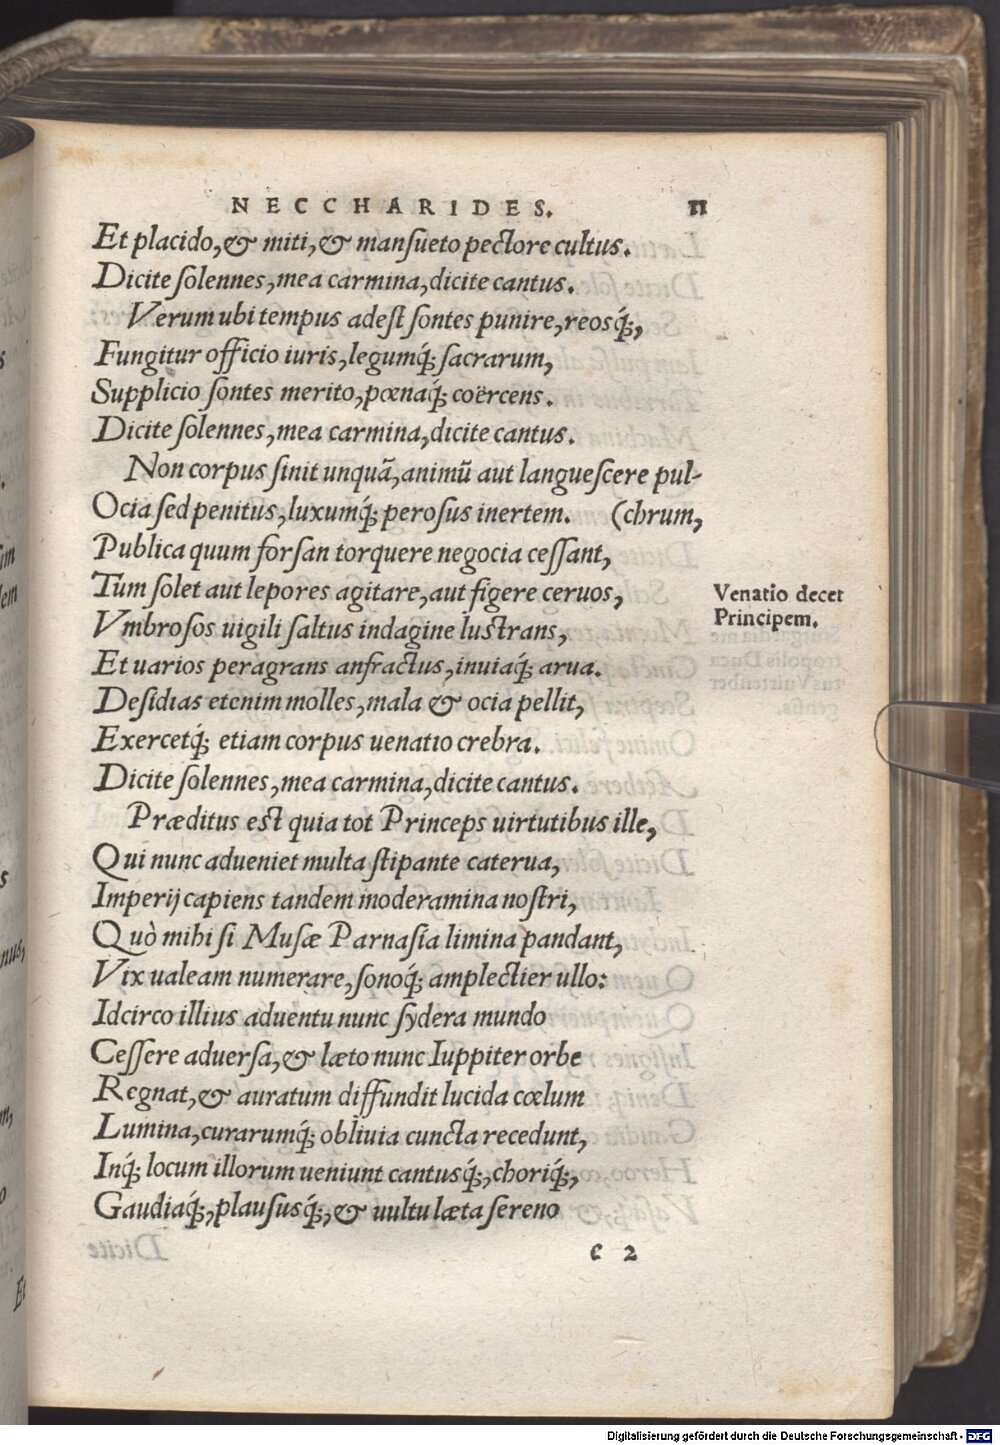 NECCHARIDES. 11
Et placido, & miti, & mansueto pectore cultus.
Dicite solennes, mea carmina, dicite cantus.
Verum ubi tempus adest sontes punire, reosq́;,
Fungitur officio iuris, legumq́; sacrarum,
Supplicio sontes merito, pœnaq́; coërcens.
Dicite solennes, mea carmina, dicite cantus.
Non corpus sinit unquā, animū aut languescere pul-
Ocia sed penitus, luxumq́; perosus inertem. (chrum,
Publica quum forsan torquere negocia cessant,
Tum solet aut lepores agitare, aut figere ceruos,
Vmbrosos uigili saltus indagine lustrans,
Et uarios peragrans anfractus, inuiaq́; arua.
Desidias etenim molles, mala & ocia pellit,
Exercetq́; etiam corpus uenatio crebra.
Dicite solennes, mea carmina, dicite cantus.
Præditus est quia tot Princeps uirtutibus ille,
Qui nunc adueniet multa stipante caterua,
Imperij capiens tandem moderamina nostri,
Quò mihi si Musæ Parnasia limina pandant,
Vix ualeam numerare, sonoq́; amplectier ullo:
Idcirco illius aduentu nunc sydera mundo
Cessere aduersa, & læto nunc Iuppiter orbe
Regnat, & auratum diffundit lucida cœlum
Lumina, curarumq́; obliuia cuncta recedunt,
Inq́; locum illorum ueniunt cantusq́;, choriq́;,
Gaudiaq́;, plaususq́;, & uultu læta sereno
c 2
Venatio decet
Principem.
Digitalisierung gefördert durch die Deutsche Forschungsgemeinschaft - DFG